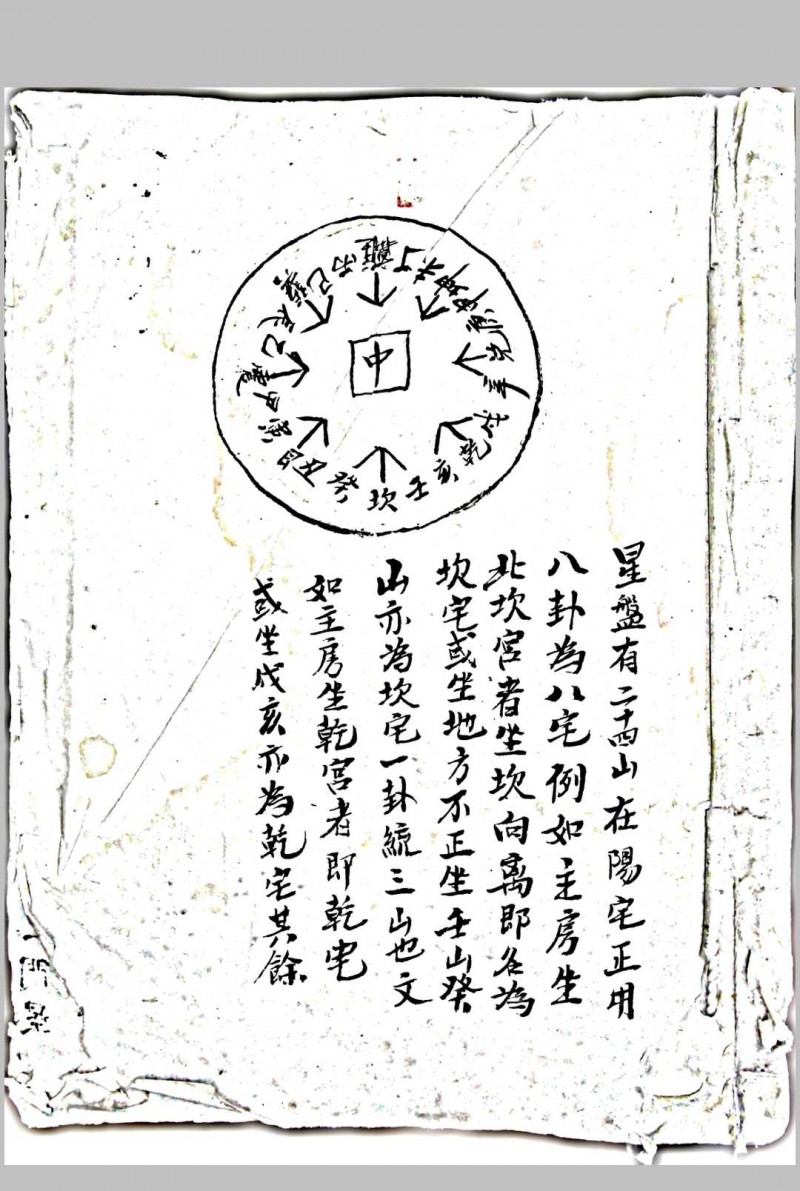 離丁未坤申
辛戌乾亥壬坎癸丑艮寅甲震乙辰巽巳丙
中
星盤有二十四山在陽宅正用
八卦為八宅例如主房生
北坎宮者坐坎向离即名為
坎宅或坐地方不正坐壬山癸
山亦為坎宅一卦統三山也文
如主房生乾宮者即乾宅
或坐戌亥亦為乾宅其餘